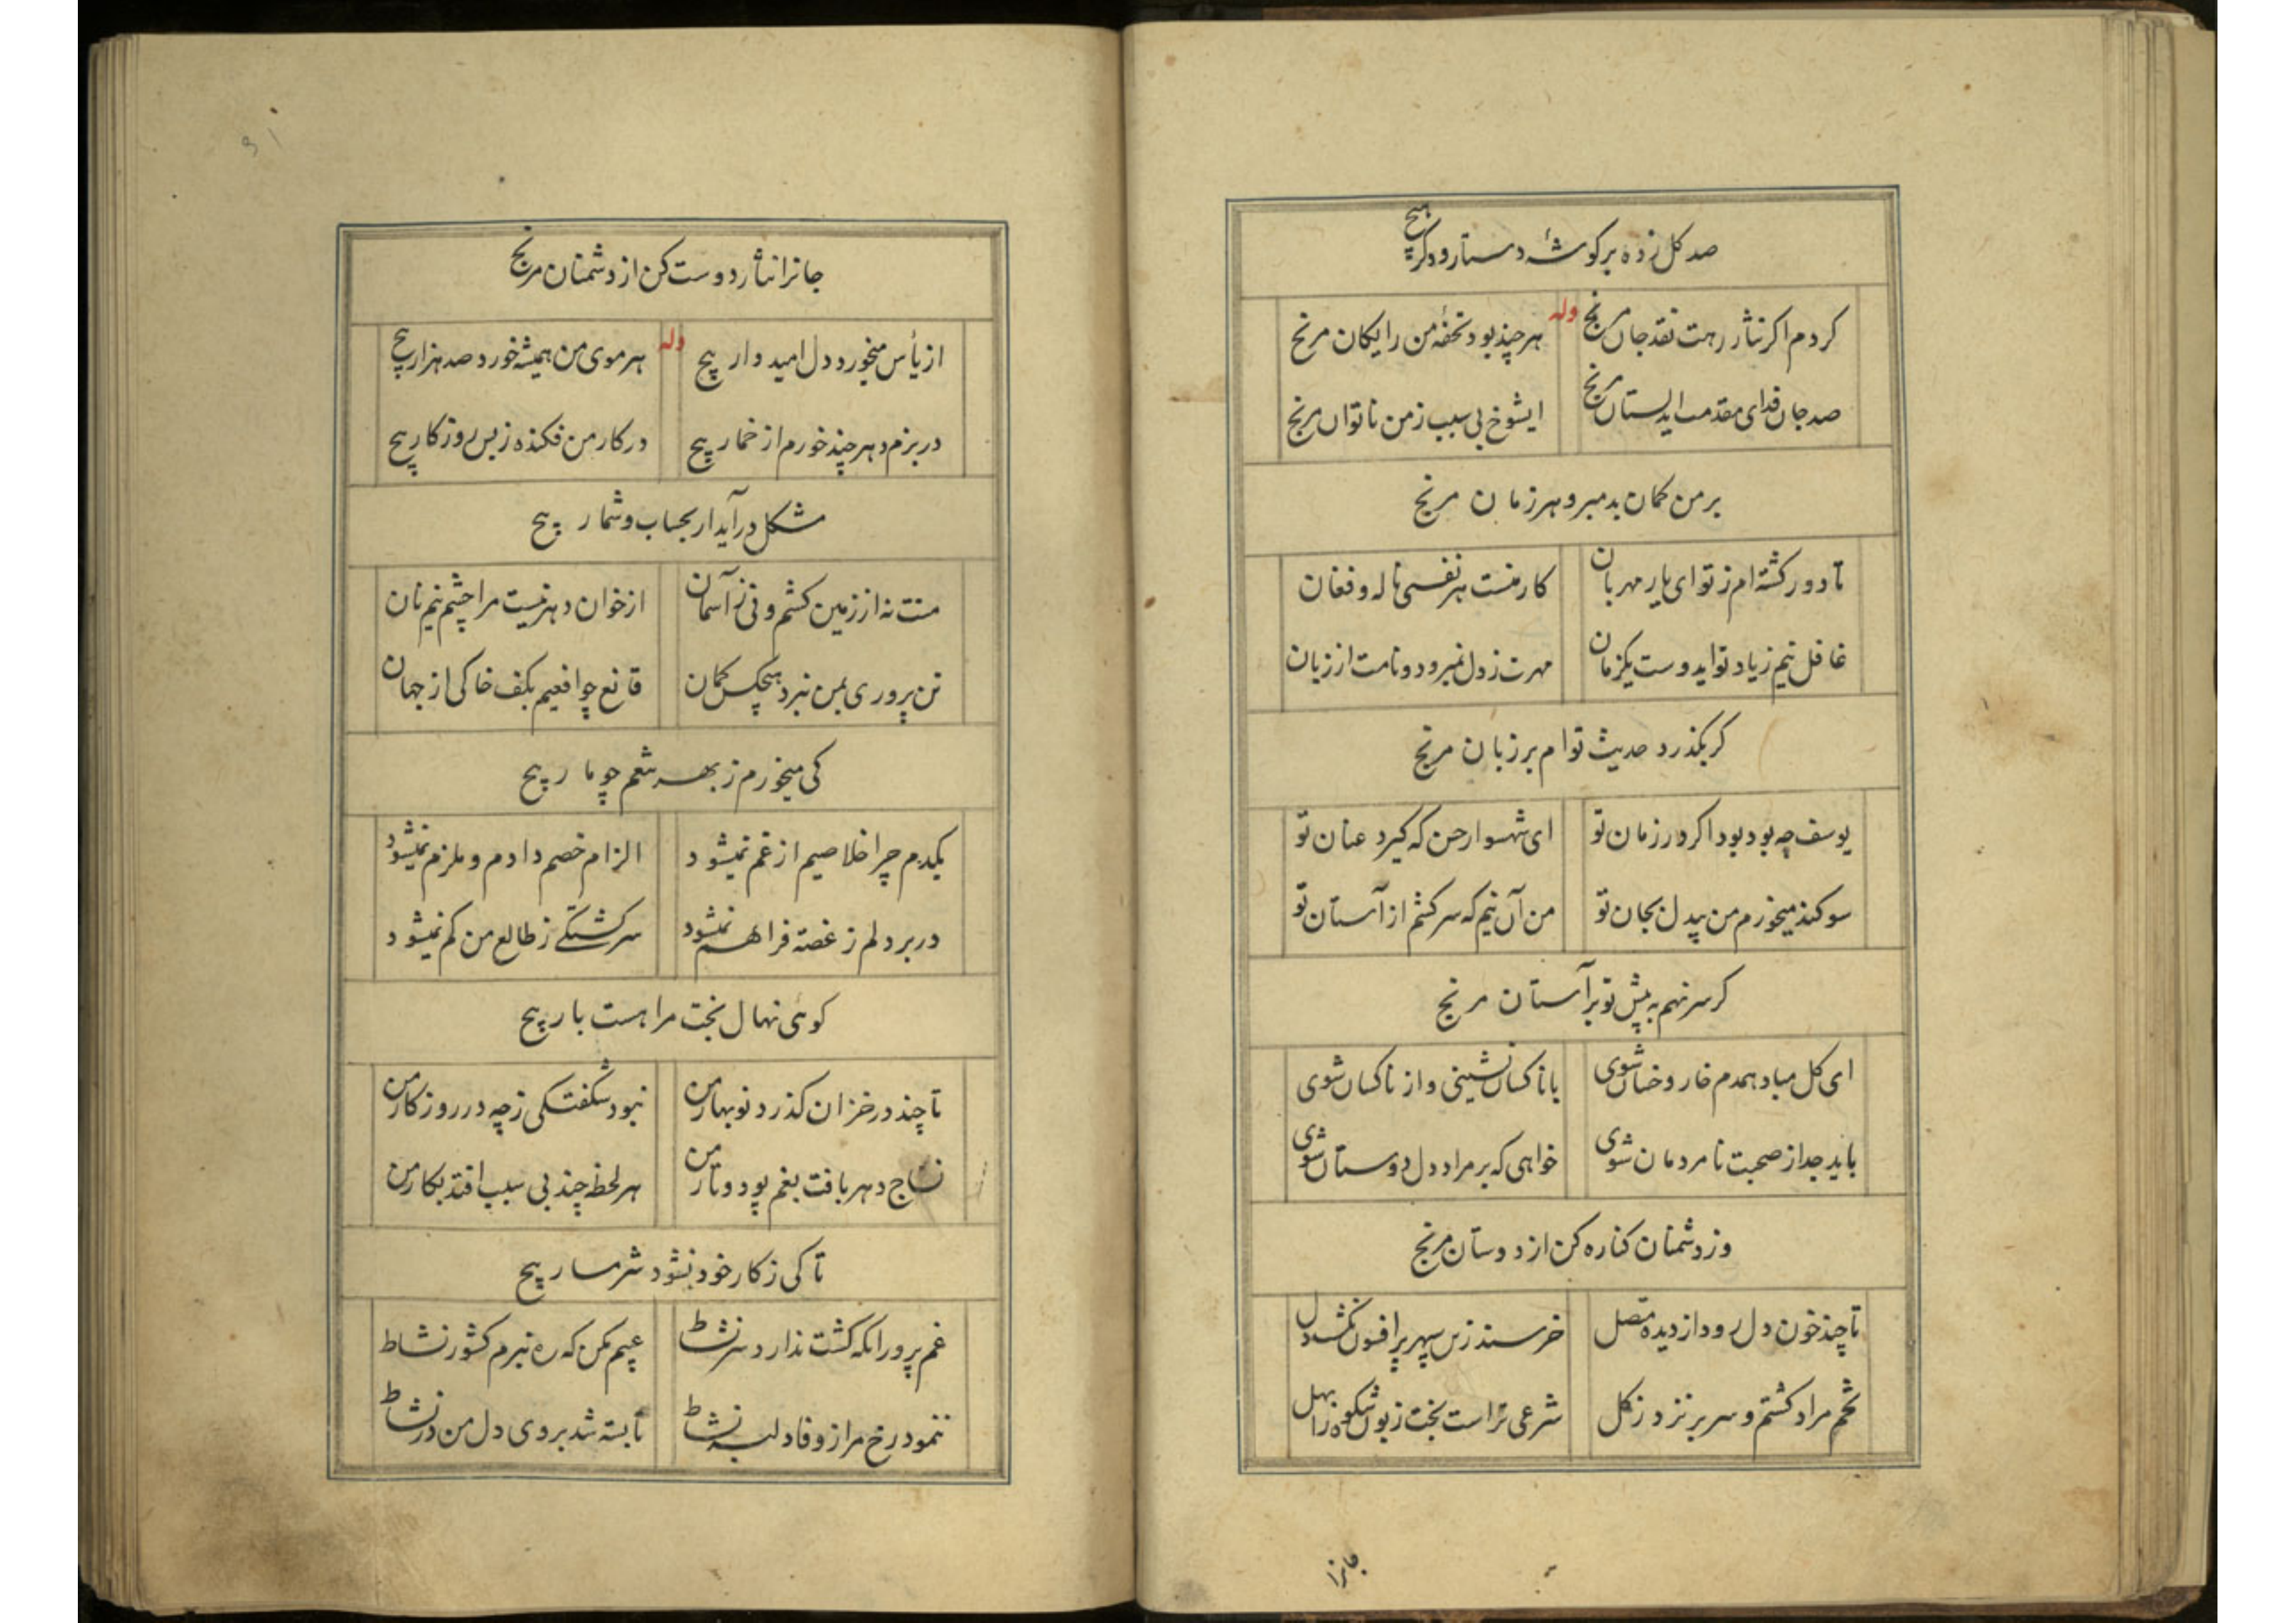 صد کل زده بر کوشهٔ دستار و دکر هیچ
کردم اکر نثار رهت نقد جان مرنج وله هر چند بود تحفهٔ من رایکان مرنج
صد جان فدای مقدمت ایدلستان مرنج ایشوخ بی سبب ز من ناتوان مرنج
بر من کمان بد مبر و هر زمان مرنج
تا دور کشته ام ز تو ای یار مهربان کار منست هر نفسی ناله و فغان
غافل نیم زیاد تو ایدوست یکزمان مهرت ز دل نمیرود و نامت از زبان
کر بکذرد حدیث توام بر زبان مرنج
یوسف چه بود بود اکر در زمان تو ای شهسوار حسن که کیرد عنان تو
سوکند میخورم من بیدل بجان تو من آن نیم که سر کشم از آستان تو
کر سر نهم به پیش تو بر آستان مرنج
ای کل مباد همدم خار و خسان شوی با ناکسان نشینی و از ناکسان شوی
باید جدا ز صحبت نامردمان شوی خواهی که بر مراد دل دوستان شوی
وز دشمنان کناره کن از دوستان مرنج
تا چند خون دل رود از دیده متصل خرسند زین سپهر پر افسون نکشت دل
تخم مراد کشتم و سر بر نزد ز کل شرعی تراست بخت زبون شکوه را بهل
جانرا
جانرا نثار دوست کن از دشمنان مرنج
از یأس میخورد دل امیدوار پیچ وله هر موی من همیشه خورد صد هزار پیچ
در بزم دهر چند خورم از خمار پیچ در کار من فکنده ز بس روزکار پیچ
مشکل در آید ار بحساب و شمار پیچ
منت نه از زمین کشم و نی ز آسمان از خوان دهر نیست مرا چشم نیم نان
تن پروری بمن نبرد هیچکس کمان قانع چو افعیم بکف خاکی از جهان
کی میخورم ز بهر شکم چو مار پیچ
یکدم چرا خلاصیم از غم نمیشود الزام خصم دادم و ملزم نمیشود
در بر دلم ز غصه فراهم نمیشود سرکشتکی ز طالع من کم نمیشود
کوئی نهال بخت مرا هست بار پیچ
تا چند در خزان کذرد نوبهار من نبود شکفتکی ز چه در روزکار من
نساج دهر بافت بغم پود و تار من هر لحظه چند بی سبب افتد بکار من
تا کی ز کار خود نشود شرمسار پیچ
غم پرور انکه کشت ندارد سر نشاط عیبم مکن که ره نبرم کشور نشاط
ننمود رخ مرا ز وفا دلبر نشاط تا بسته شد بروی دل من در نشاط